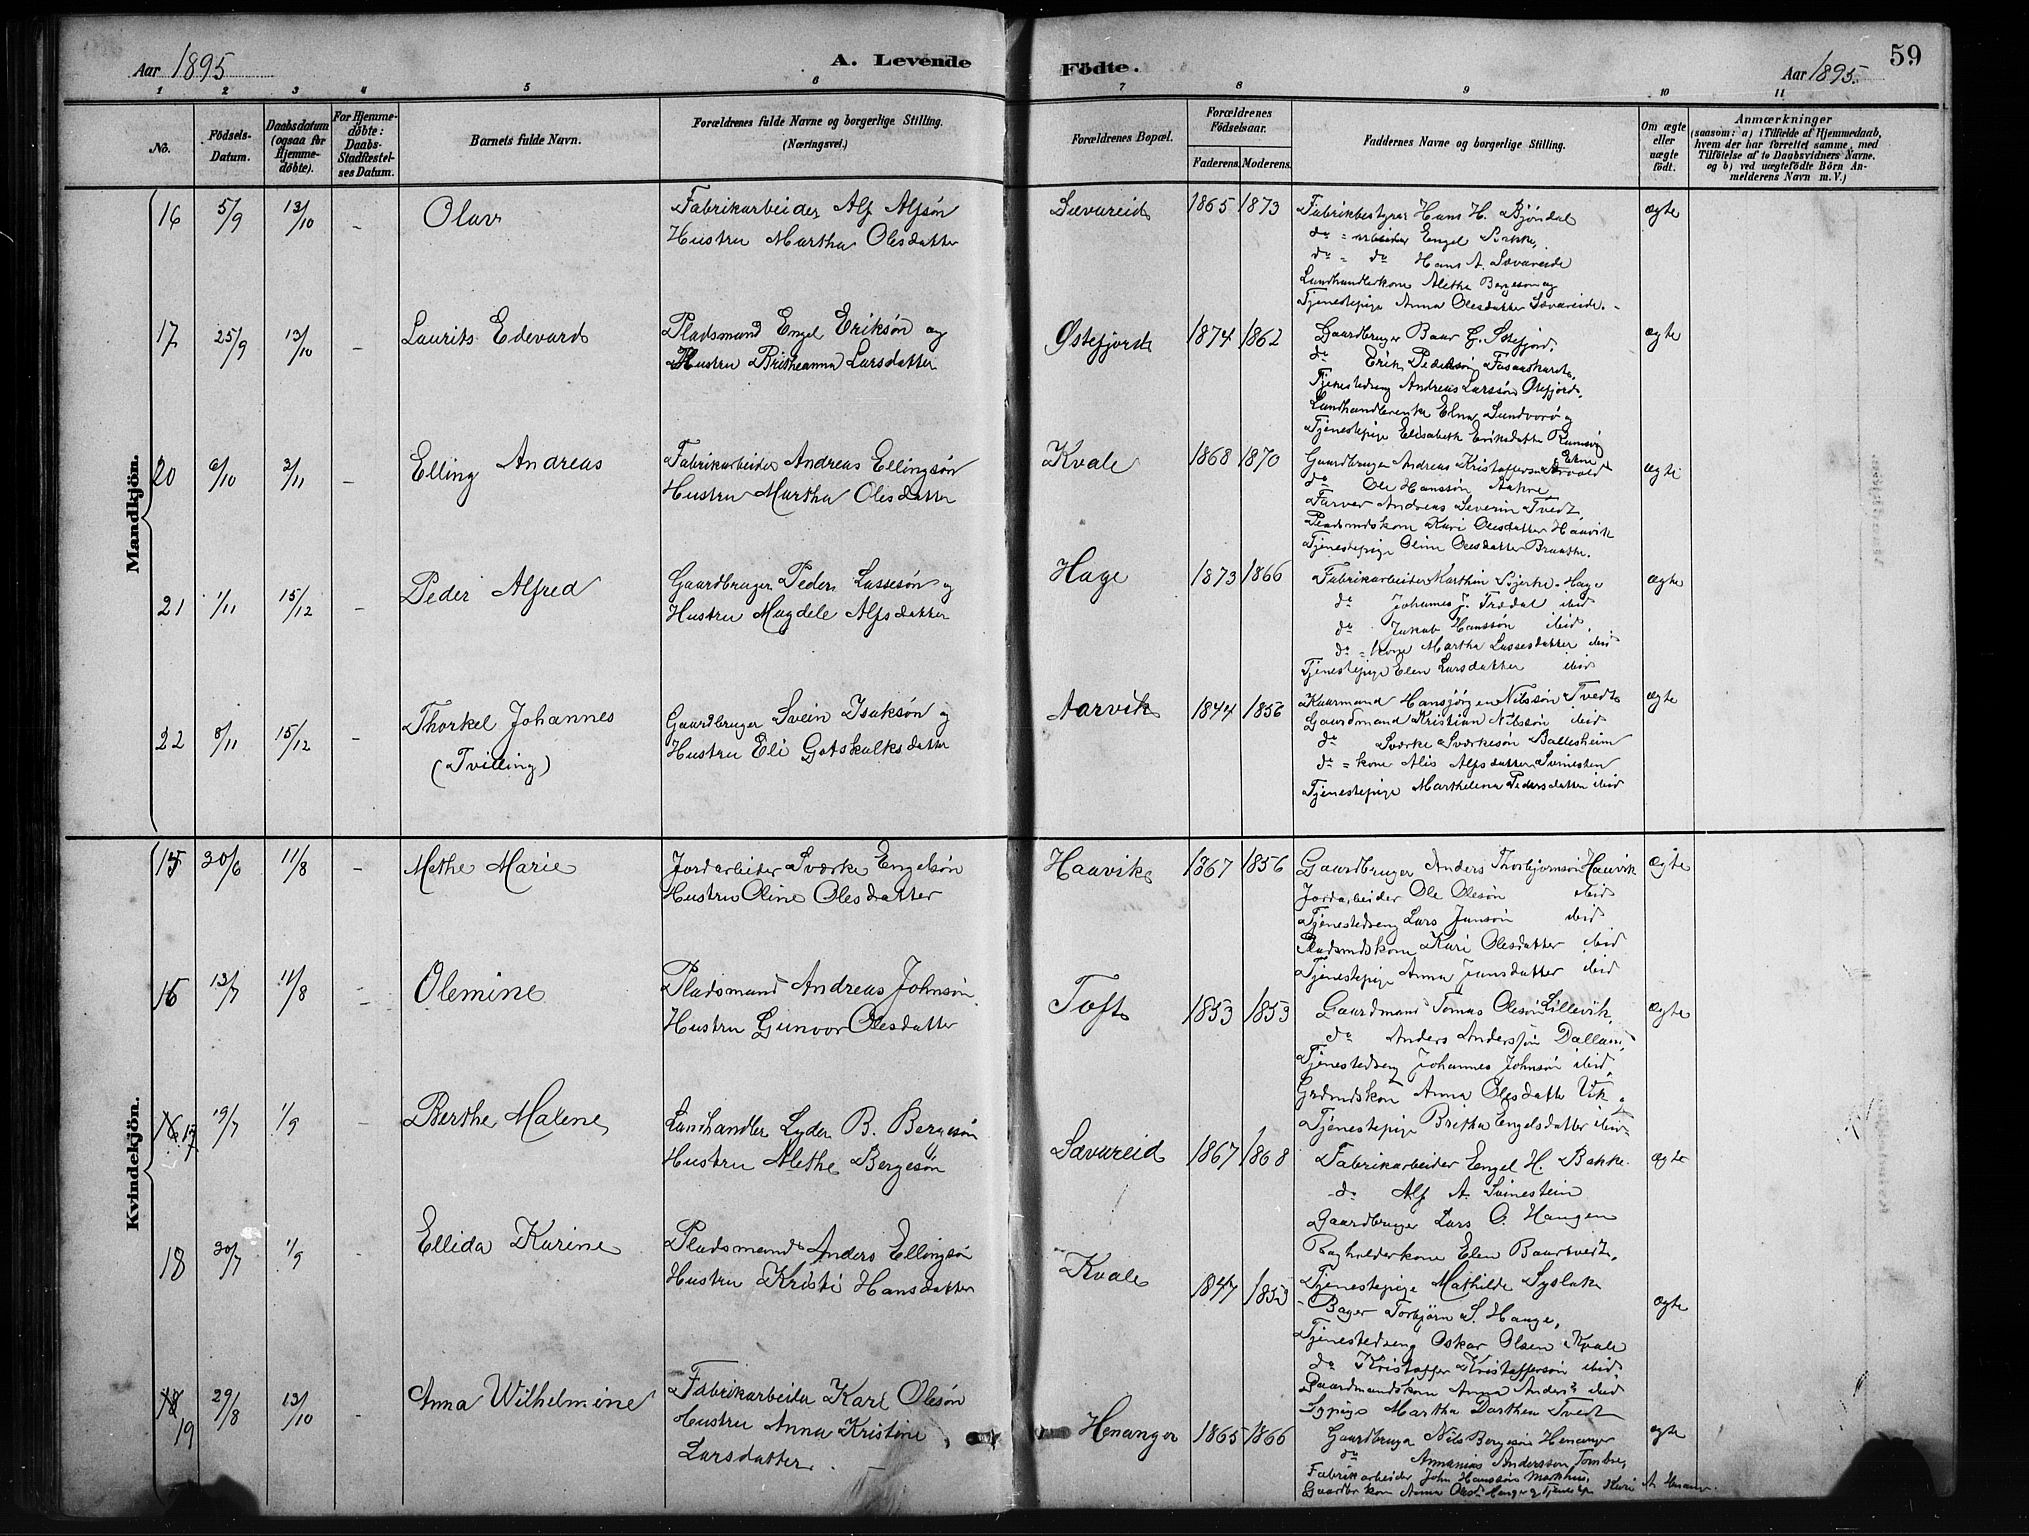 Aar 1895
A. Levende Födte.
Aar 1895.
59
1 2 3 4 5 6 7 8 9 10 11
No.
Födsels-Datum.
Daabsdatum (ogsaa for Hjemme-döbte).
For Hjemme-döbte: Daabs-Stadfæstel-ses Datum.
Barnets fulde Navn.
Forældrenes fulde Navne og borgerlige Stilling.
(Næringsvei.)
Forældrenes Bopæl.
Forældrenes Födselsaar.
Faderens. Moderens.
Faddernes Navne og borgerlige Stilling.
Om ægte eller uægte födt.
Anmærkninger
(saasom: a) i Tilfælde af Hjemmedaab, hvem der har forrettet samme, med Tilföielse af to Daabsvidners Navne, og b) ved uægtefödte Börn An-melderens Navn m. V.)
Mandkjön.
16 5/9 13/10 - Olav
Fabrikarbeider Alf Alfsön
Hustru Martha Olesdatter
Sævareid 1865 1873
Fabrikbestyrer Hans H. Bjöndal
do = arbeider Engel Bakke,
do = do Hans A. Sævareide
Landhandlerkone Alethe Bergeson og
Tjenestepige Anna Olesdatter Sævareide.
ægte
17 25/9 13/10 - Laurits Edevard
Pladsmand Engel Eriksön og
Hustru Britheanna Larsdatter
Østefjord 1874 1862
Gaardbruger Baar G. Østefjord,
do Erik Pedersön
Tjenestedreng Andreas Larssön Østefjord,
Landhandlerenke Elna Sundvorö og
Tjenestepige Elisabeth Eriksdatter
ægte
20 6/10 3/11 - Elling Andreas
Fabrikarbeider Andreas Ellingsön
Hustru Martha Olesdatter
Kvale 1868 1870
Gaardbruger Andreas Kristoffersen
do Ole Hanssön Aakre
Farver Andreas Severin Tvedt,
Pladsmdskone Kari Olesdatter Haavik
Tjenestepige Oline Olesdatter
ægte
21 1/11 15/12 - Peder Alfred
Gaardbruger Peder Lassesön og
Hustru Magdele Alfsdatter
Hage 1873 1866
Fabrikarbeider Bjerke Hage
do Johannes J. Trædal ibid
do Jakob Hanssön ibid.
do = kone Martha Lassesdatter ibid
Tjenestepige Elen Larsdatter ibid
ægte
22 8/11 15/12 - Thorkel Johannes
(Tvilling)
Gaardbruger Svein Isaksön og
Hustru Eli Gotskalksdatter
Aarvik 1844 1856
Kaarmand Hansjörgen Nilssön Tvedt
Gaardmand Kristian Nilssön ibid
do Sværke Sværkesön Ballesheim
do = kone Alis Alfsdatter Svinesten
Tjenestepige Marthelena Pedersdatter ibid
ægte
Kvindekjön.
15 30/6 11/8 - Methe Marie
Jordarbeider Sværke Engelsön
Hustru Oline Olesdatter
Haavik 1867 1856
Gaardbruger Anders Thorbjörnsön Haavik
Jordarbeider Ole Olesön ibid
Tjenestedreng Lars Jansön ibid
Pladsmdskone Kari Olesdatter ibid
Tjenestepige Anna Jansdatter ibid
ægte
16 13/7 11/8 - Olemine
Pladsmand Andreas Johnsön
Hustru Gunvor Olesdatter
Toft 1853 1853
Gaardmand Tomas Olesön Lillevik,
do Anders Anderssön Dalland,
Tjenestedreng Johannes Johnsön ibid,
Grdmdskon Anna Olesdatter Vik
Tjenestepige Britha Engelsdatter ibid
ægte
17 19/7 1/9 - Berthe Malene
Landhandler Lyder B. Bergesön
Hustru Alethe Bergesön
Sævareid 1867 1868
Fabrikarbeider Engel H. Bakke
do Alf A. Svinestein
Gaardbruger Lars O. Haugen
Bogholderkone Elen Baartvedt,
Tjenestepige Mathilde Syslak
ægte
18 30/7 1/9 - Ellida Karine
Pladsmand Anders Ellingsön
Hustru Kristi Hansdatter
Kvale 1847 1853
Bager Torbjörn S. Hauge,
Tjenestedreng Oskar Olsen Kvale
do Kristoffer Kristoffersön ibid
Gaardmandskone Anna Anders? ibid
Sypige Martha Dorthea Tvedt
ægte
19 29/8 13/10 - Anna Wilhelmine
Fabrikarbeider Karl Olesön
Hustru Anna Kristine
Larsdatter.
Henanger 1865 1866
Gaardbruger Nils Bergesön Henanger
do Annanias Anderssön
Fabrikarbeider John Hanssön Markhus,
Gaardbr kone Anna
ægte